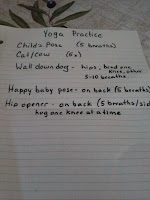 Yoga Practice
Child's Pose (5 breaths)
Cat/Cow (6x)
Wall down dog - hips, bend one
knee, other
5-10 breaths
Happy baby pose - on back (15 breaths)
Hip opener - on back (5 breaths/side)
hug one knee at a time